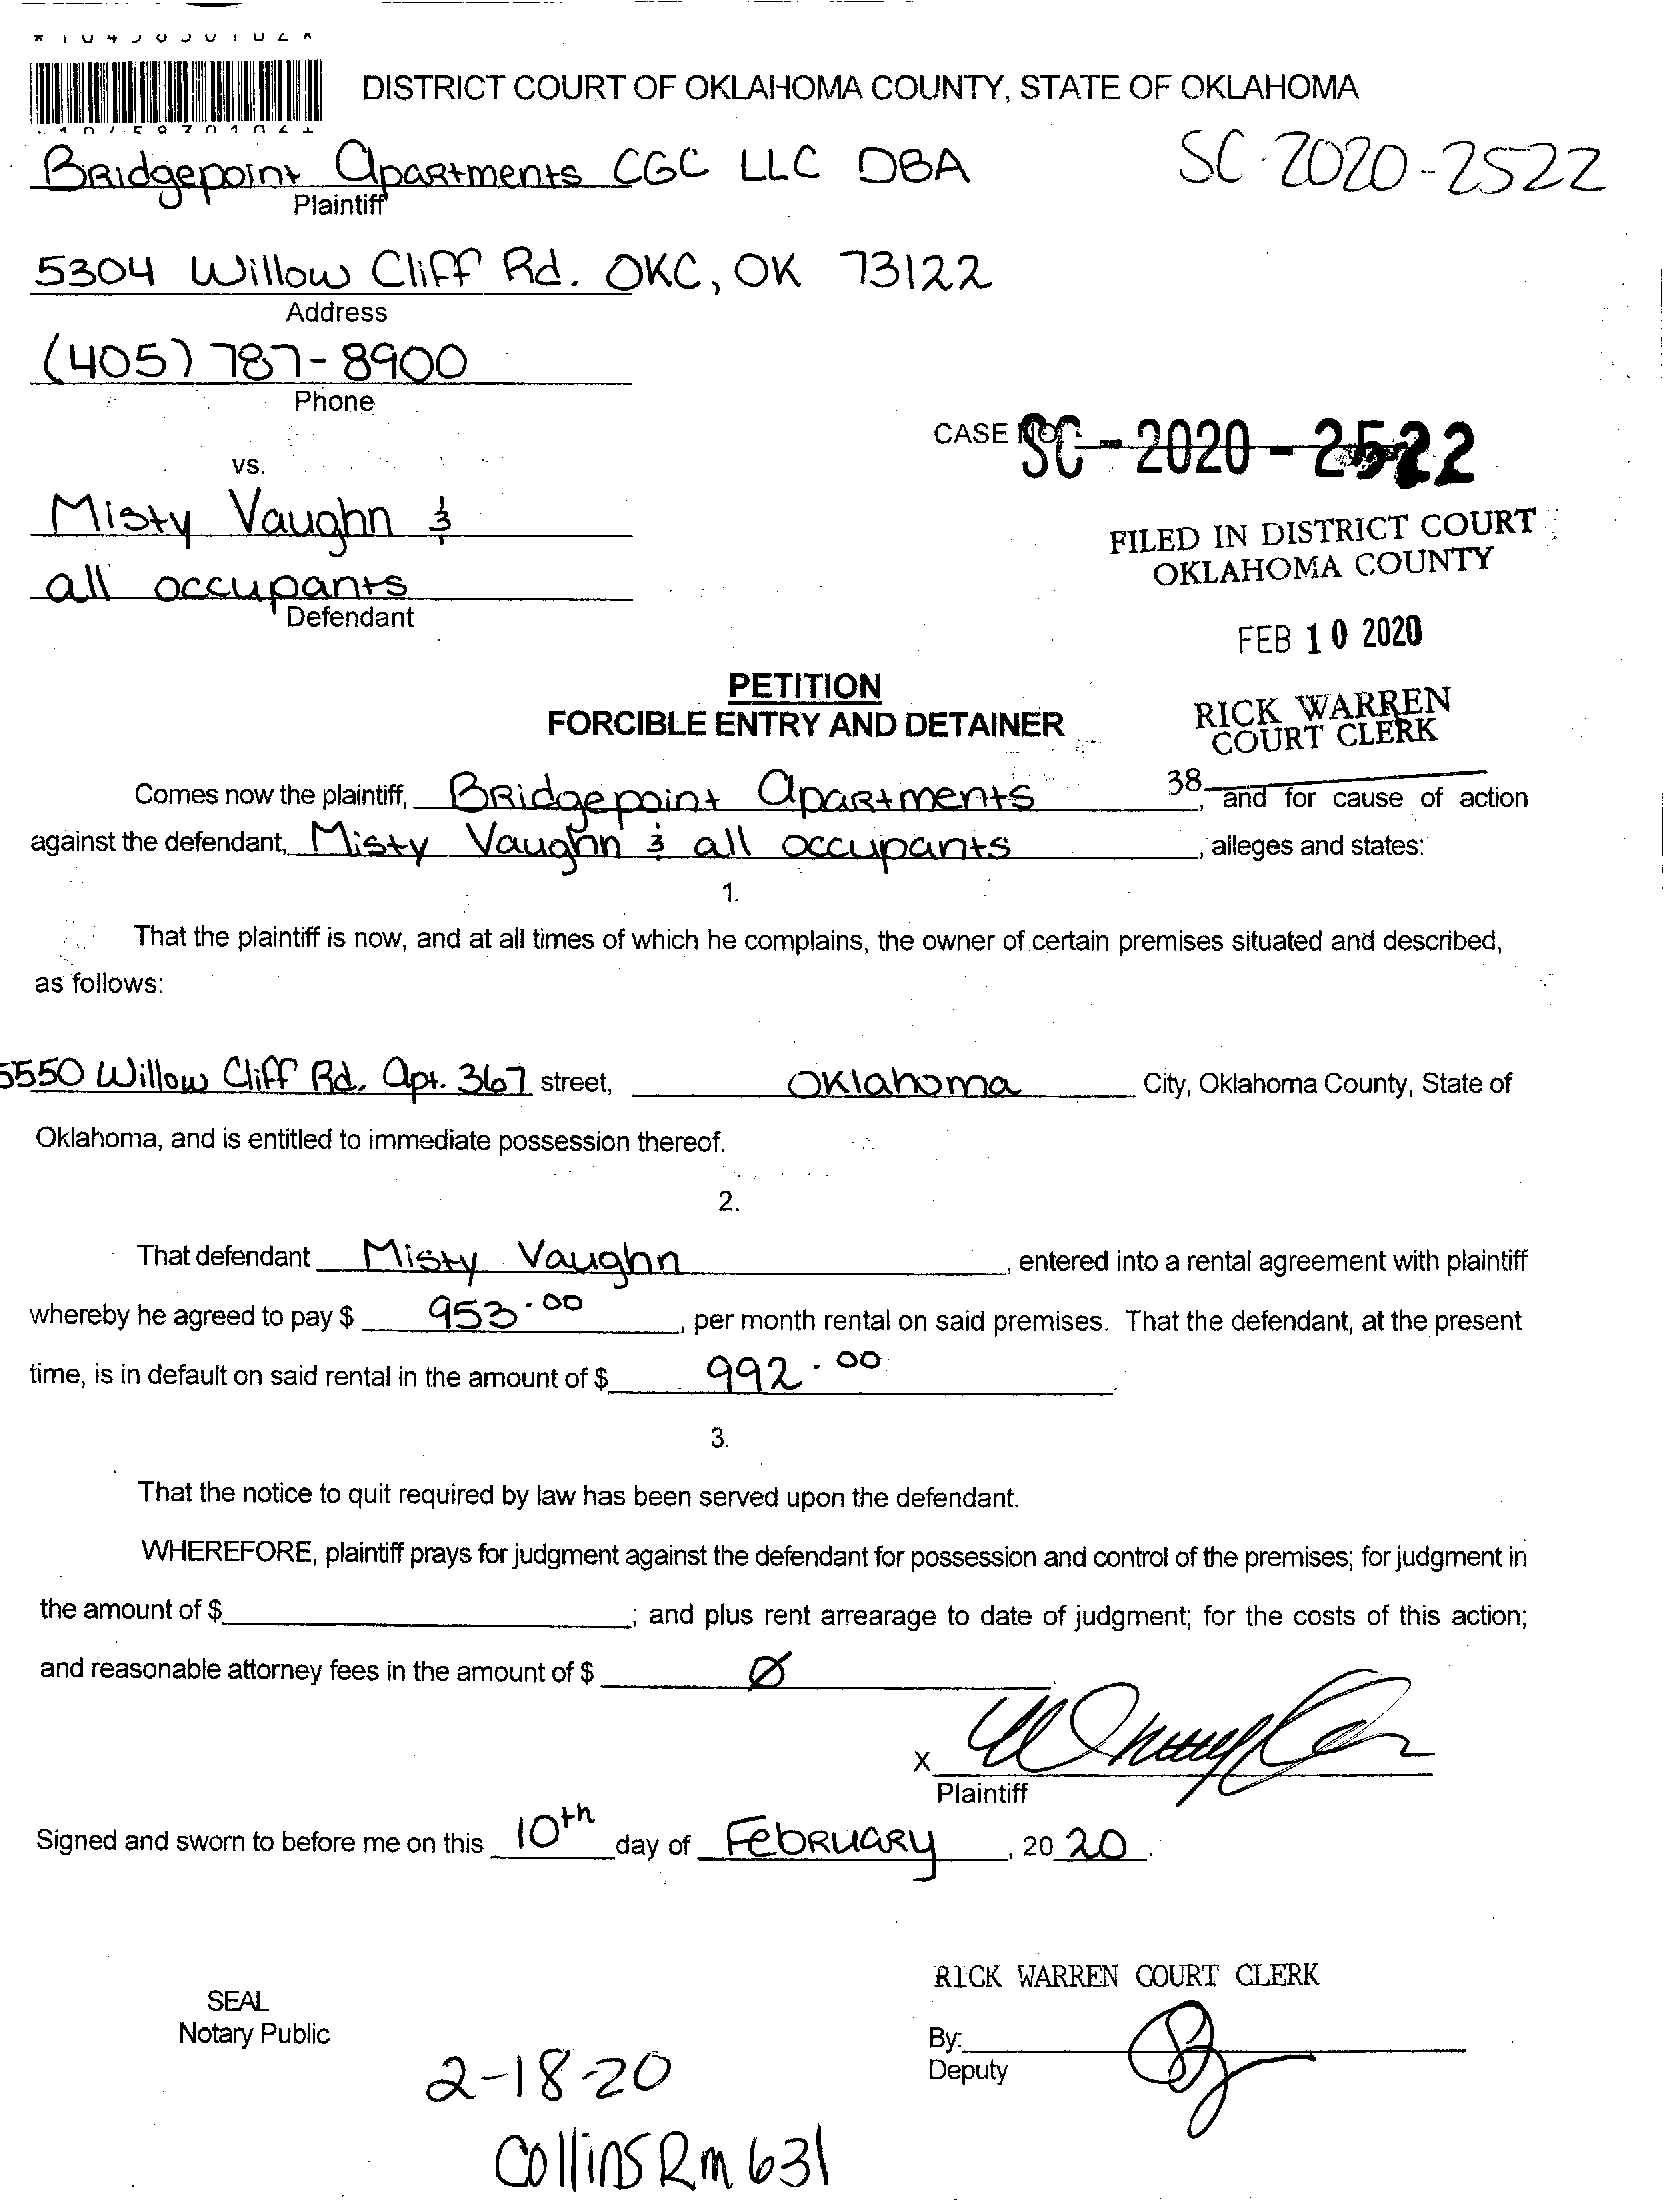 DISTRICT COURT OF OKLAHOMA COUNTY, STATE OF OKLAHOMA
Bridgepoint Apartments CGC LLC DBA
SC-2020-2522
Plaintiff
5304 Willow Cliff Rd. OKC, OK 73122
Address
(405) 787-8900
Phone
CASE NO. SC-2020-2522
vs.
Misty Vaughn &
FILED IN DISTRICT COURT
OKLAHOMA COUNTY
all occupants
Defendant
FEB 10 2020
PETITION
FORCIBLE ENTRY AND DETAINER
RICK WARREN
COURT CLERK
38
Comes now the plaintiff, Bridgepoint Apartments, and for cause of action
against the defendant, Misty Vaughn & all occupants, alleges and states:
1.
That the plaintiff is now, and at all times of which he complains, the owner of certain premises situated and described,
as follows:
5550 Willow Cliff Rd. Apt. 367 street, Oklahoma City, Oklahoma County, State of
Oklahoma, and is entitled to immediate possession thereof.
2.
That defendant Misty Vaughn, entered into a rental agreement with plaintiff
whereby he agreed to pay $ 953.00, per month rental on said premises. That the defendant, at the present
time, is in default on said rental in the amount of $ 992.00.
3.
That the notice to quit required by law has been served upon the defendant.
WHEREFORE, plaintiff prays for judgment against the defendant for possession and control of the premises; for judgment in
the amount of $ ; and plus rent arrearage to date of judgment; for the costs of this action;
and reasonable attorney fees in the amount of $ Ø
X
Plaintiff
Signed and sworn to before me on this 10th day of February, 2020.
RICK WARREN COURT CLERK
SEAL
Notary Public
By:
Deputy
2-18-20
Collins Rm 631